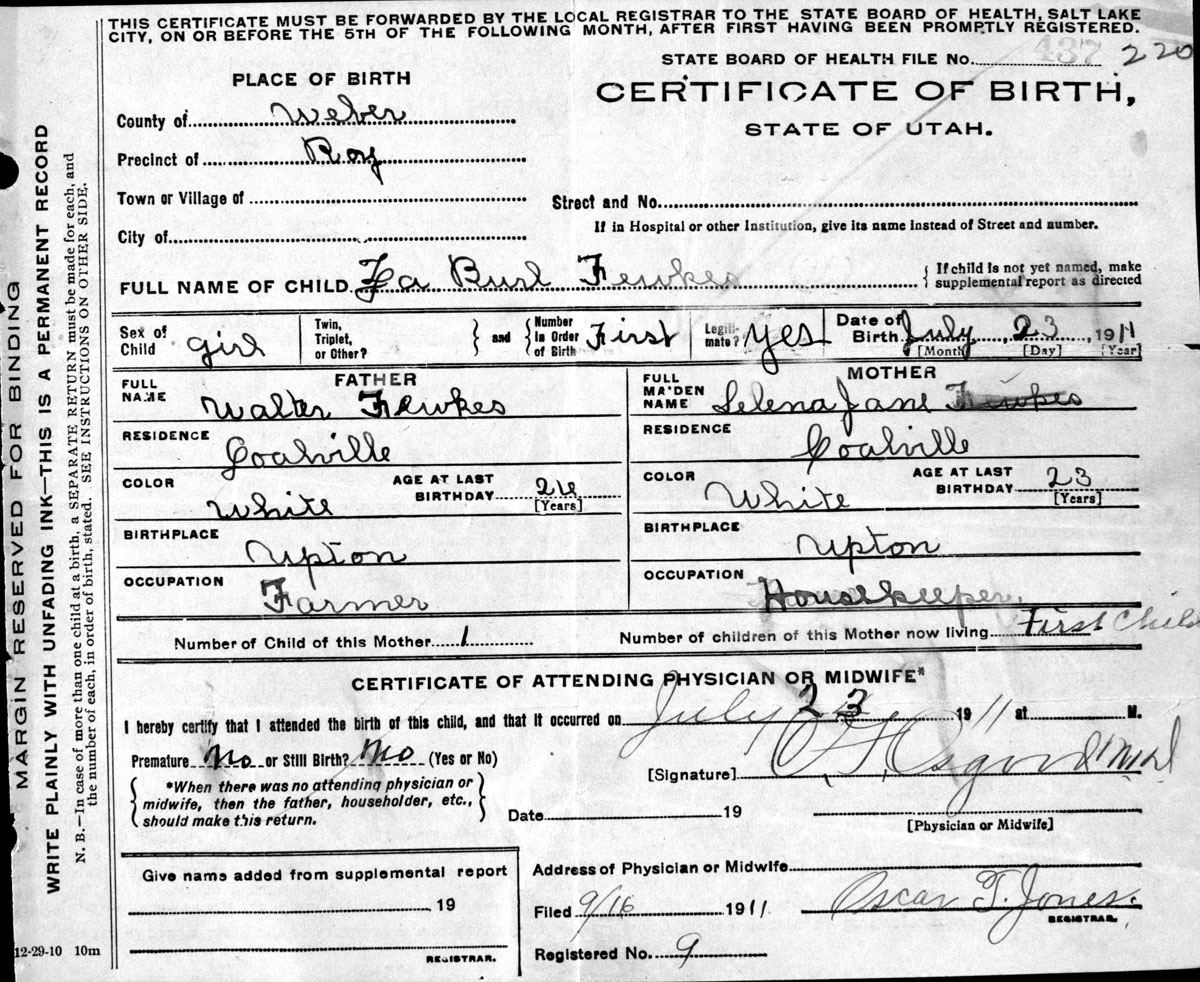 THIS CERTIFICATE MUST BE FORWARDED BY THE LOCAL REGISTRAR TO THE STATE BOARD OF HEALTH, SALT LAKE
CITY, ON OR BEFORE THE 5TH OF THE FOLLOWING MONTH, AFTER FIRST HAVING BEEN PROMPTLY REGISTERED.
STATE BOARD OF HEALTH FILE No. 437 220
PLACE OF BIRTH
CERTIFICATE OF BIRTH,
STATE OF UTAH.
County of Weber
Precinct of Roy
Town or Village of
Street and No.
City of
If in Hospital or other Institution, give its name instead of Street and number.
FULL NAME OF CHILD Burl Fewkes
{ If child is not yet named, make
supplemental report as directed
Sex of Child girl
Twin, Triplet, or Other? } and { Number in Order of Birth First
Legitimate? yes
Date of Birth July 23 1911
[Month] [Day] [Year]
FATHER
FULL NAME Walter Fewkes
RESIDENCE Coalville
COLOR White
AGE AT LAST BIRTHDAY
[Years]
BIRTHPLACE Upton
OCCUPATION Farmer
MOTHER
FULL MAIDEN NAME Selena Jane Fewkes
RESIDENCE Coalville
COLOR White
AGE AT LAST BIRTHDAY 23
[Years]
BIRTHPLACE Upton
OCCUPATION Housekeeper.
Number of Child of this Mother 1
Number of children of this Mother now living First Child
CERTIFICATE OF ATTENDING PHYSICIAN OR MIDWIFE*
I hereby certify that I attended the birth of this child, and that it occurred on July 23 1911 at M.
Premature No or Still Birth? No (Yes or No)
{ *When there was no attending physician or
midwife, then the father, householder, etc.,
should make this return. }
[Signature] Osgood
Date 19
[Physician or Midwife]
Give name added from supplemental report
19
REGISTRAR.
Address of Physician or Midwife
Filed 9/16 1911 Oscar T. Jones.
REGISTRAR.
Registered No. 9
12-29-10 10m
MARGIN RESERVED FOR BINDING
WRITE PLAINLY WITH UNFADING INK—THIS IS A PERMANENT RECORD
N. B.—In case of more than one child at a birth, a SEPARATE RETURN must be made for each, and
the number of each, in order of birth, stated. SEE INSTRUCTIONS ON OTHER SIDE.